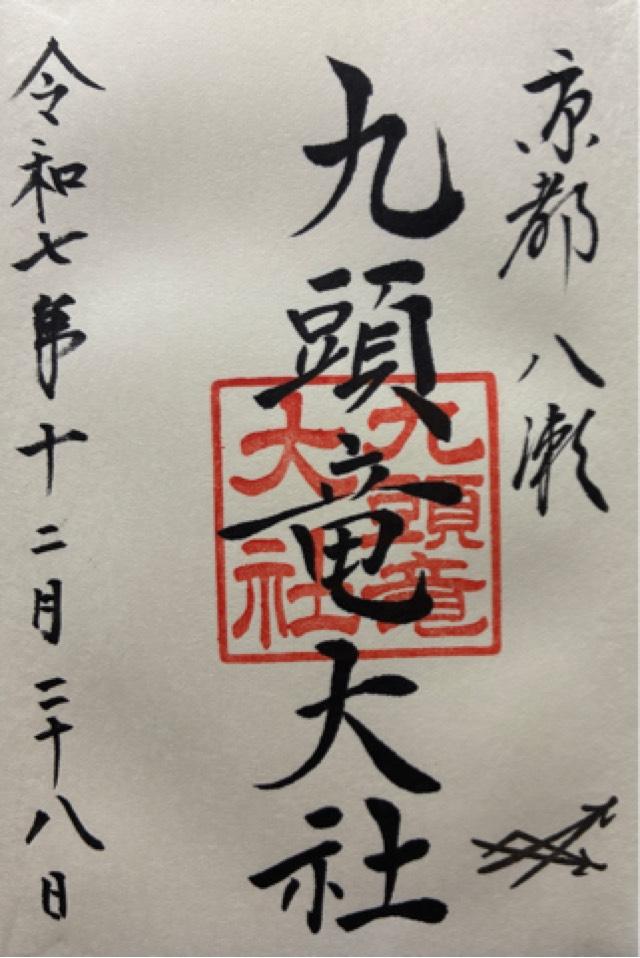 京都 八瀬
九頭竜大社
九頭竜
大社
令和七年十二月二十八日